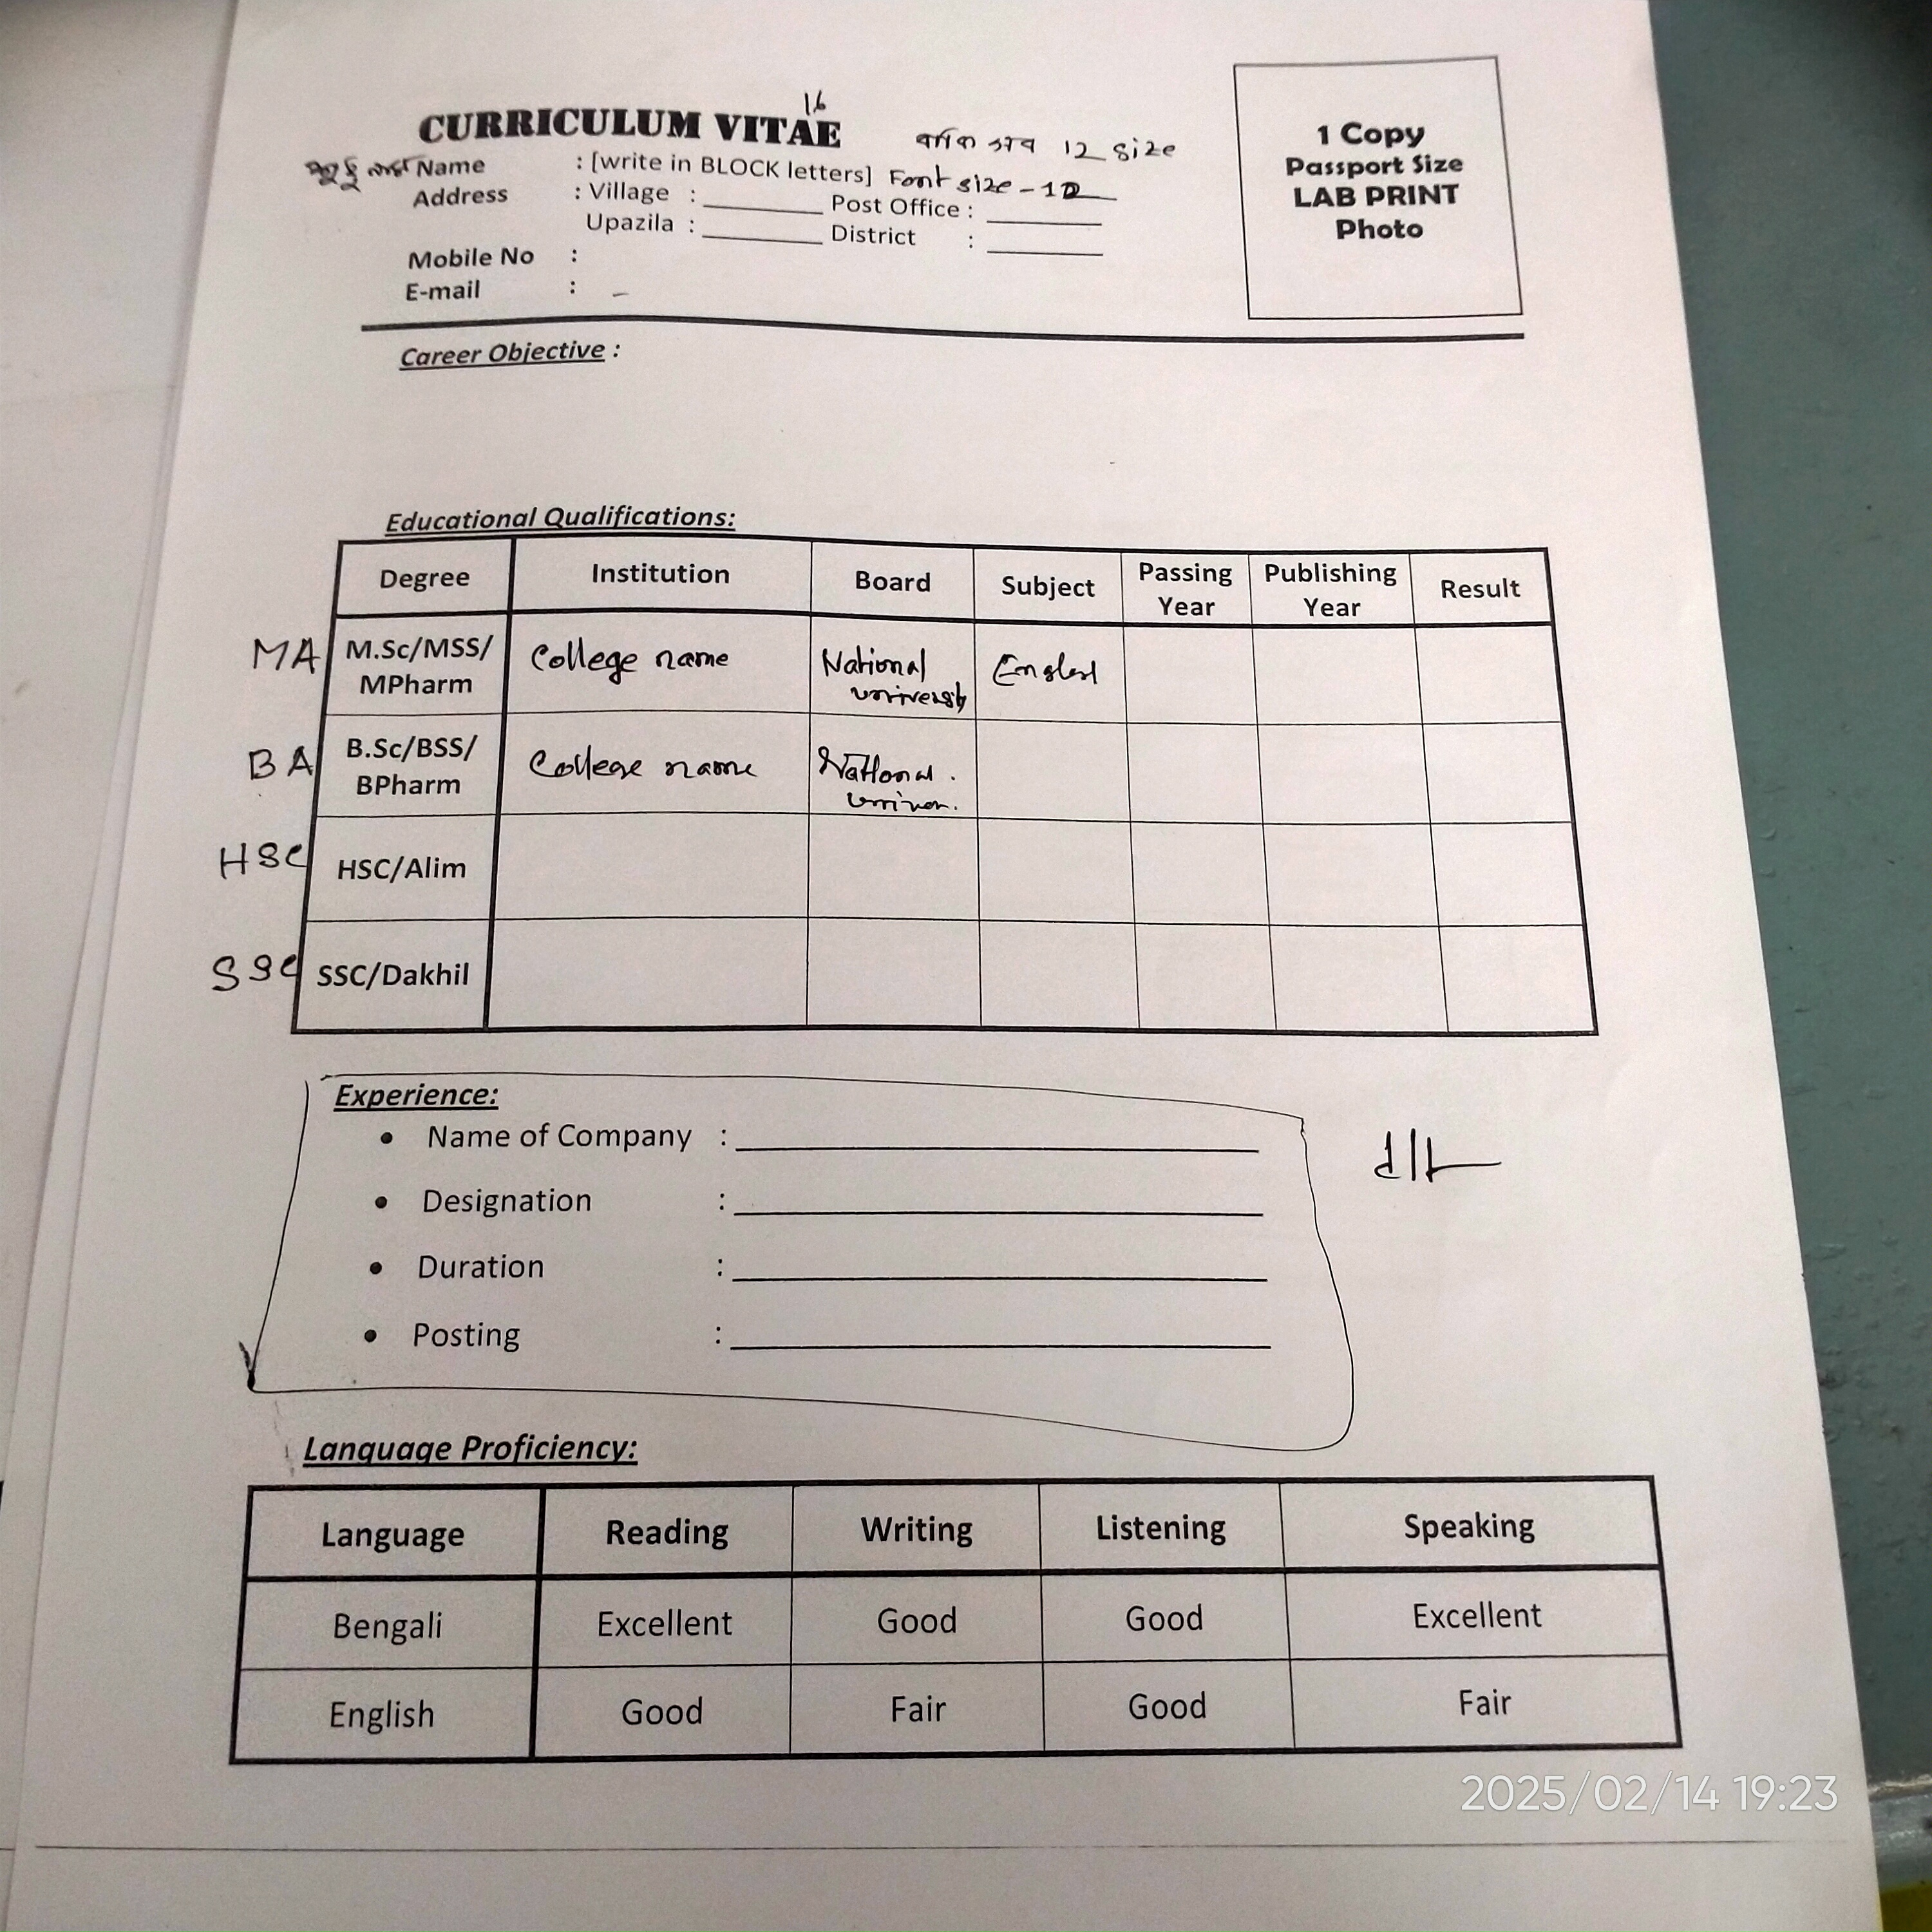 16
CURRICULUM VITAE
বাকি সব 12 size
Name : [write in BLOCK letters] Font size - 12
Address : Village : Post Office :
Upazila : District :
Mobile No :
E-mail :
1 Copy
Passport Size
LAB PRINT
Photo
Career Objective :
Educational Qualifications:
Degree Institution Board Subject Passing Year Publishing Year Result
MA M.Sc/MSS/ MPharm College name National university
BA B.Sc/BSS/ BPharm College name National
HSC HSC/Alim
SSC SSC/Dakhil
Experience:
• Name of Company :
• Designation :
• Duration :
• Posting :
Language Proficiency:
Language Reading Writing Listening Speaking
Bengali Excellent Good Good Excellent
English Good Fair Good Fair
2025/02/14 19:23